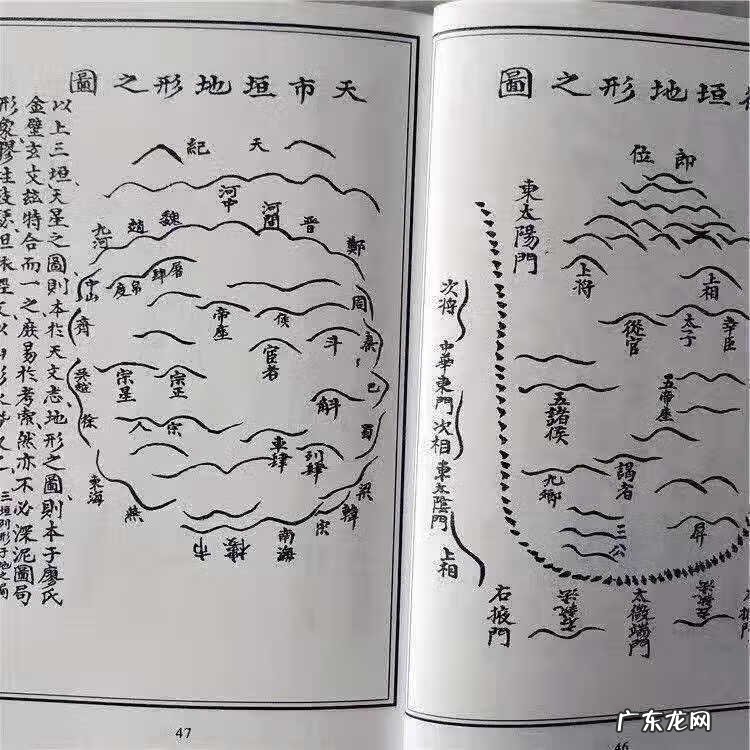 天市垣地形之圖
天紀
河中
河間
晉
鄭
魏
趙
九河
中山
屠肆
帛度
周
齊
帝座
候
斗
秦
宦者
巴
吳越
宗星
宗正
斛
徐
蜀
宗人
車肆
列肆
東海
燕
梁
韓
宋
南海
市樓
以上三垣天星之圖則本於天文志地形之圖則本于廖氏
金璧玄文茲特合而一之庶易於考索然亦不必深泥圖局
47
垣地形之圖
郎位
東太陽門
上將
上相
次將
從官
太子
幸臣
中華東門
五帝座
五諸侯
次相
謁者
九卿
東太陰門
三公
上相
右掖門
太微端門
46
广东龙网